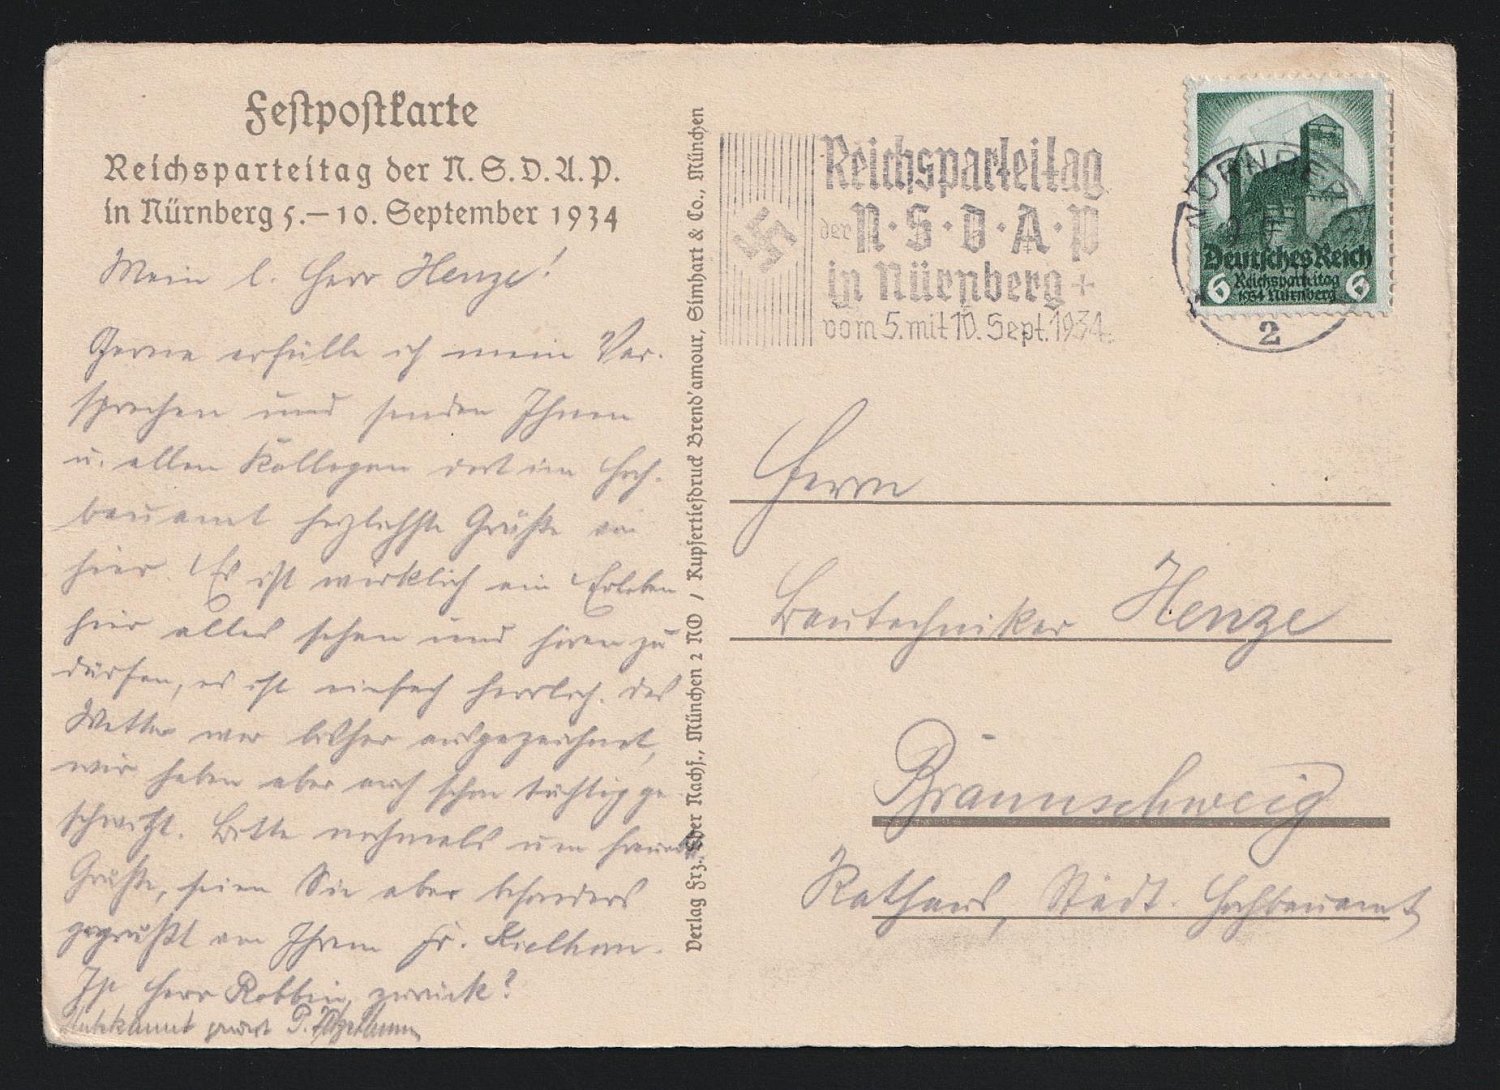 Festpostkarte
Reichsparteitag der N.S.D.A.P.
in Nürnberg 5.–10. September 1934
Mein l. Herr Henze!
Gerne erfülle ich mein Ver-
sprechen und sende Ihnen
u. allen Kollegen dort im Hoch-
bauamt herzlichste Grüße von
hier. Es ist wirklich ein Erleben
hier alles sehen und hören zu
dürfen, es ist einfach herrlich. Das
Wetter war bisher ausgezeichnet,
wir haben aber auch schon tüchtig ge
schwitzt. Bitte nochmals um
Grüße, seien Sie aber besonders
gegrüßt von Ihrem Fr.
Ist Herr Robbin zurück?
Verlag Frz. Eher Nachf., München 2 NO / Kupfertiefdruck Brend'amour, Simhart & Co., München
Reichsparteitag
der N·S·D·A·P
in Nürnberg
vom 5. mit 10. Sept. 1934.
NÜRNBERG
2
Deutsches Reich
6 Reichsparteitag 6
1934 Nürnberg
Herrn
Bautechniker Henze
Braunschweig
Rathaus, Städt. Hochbauamt